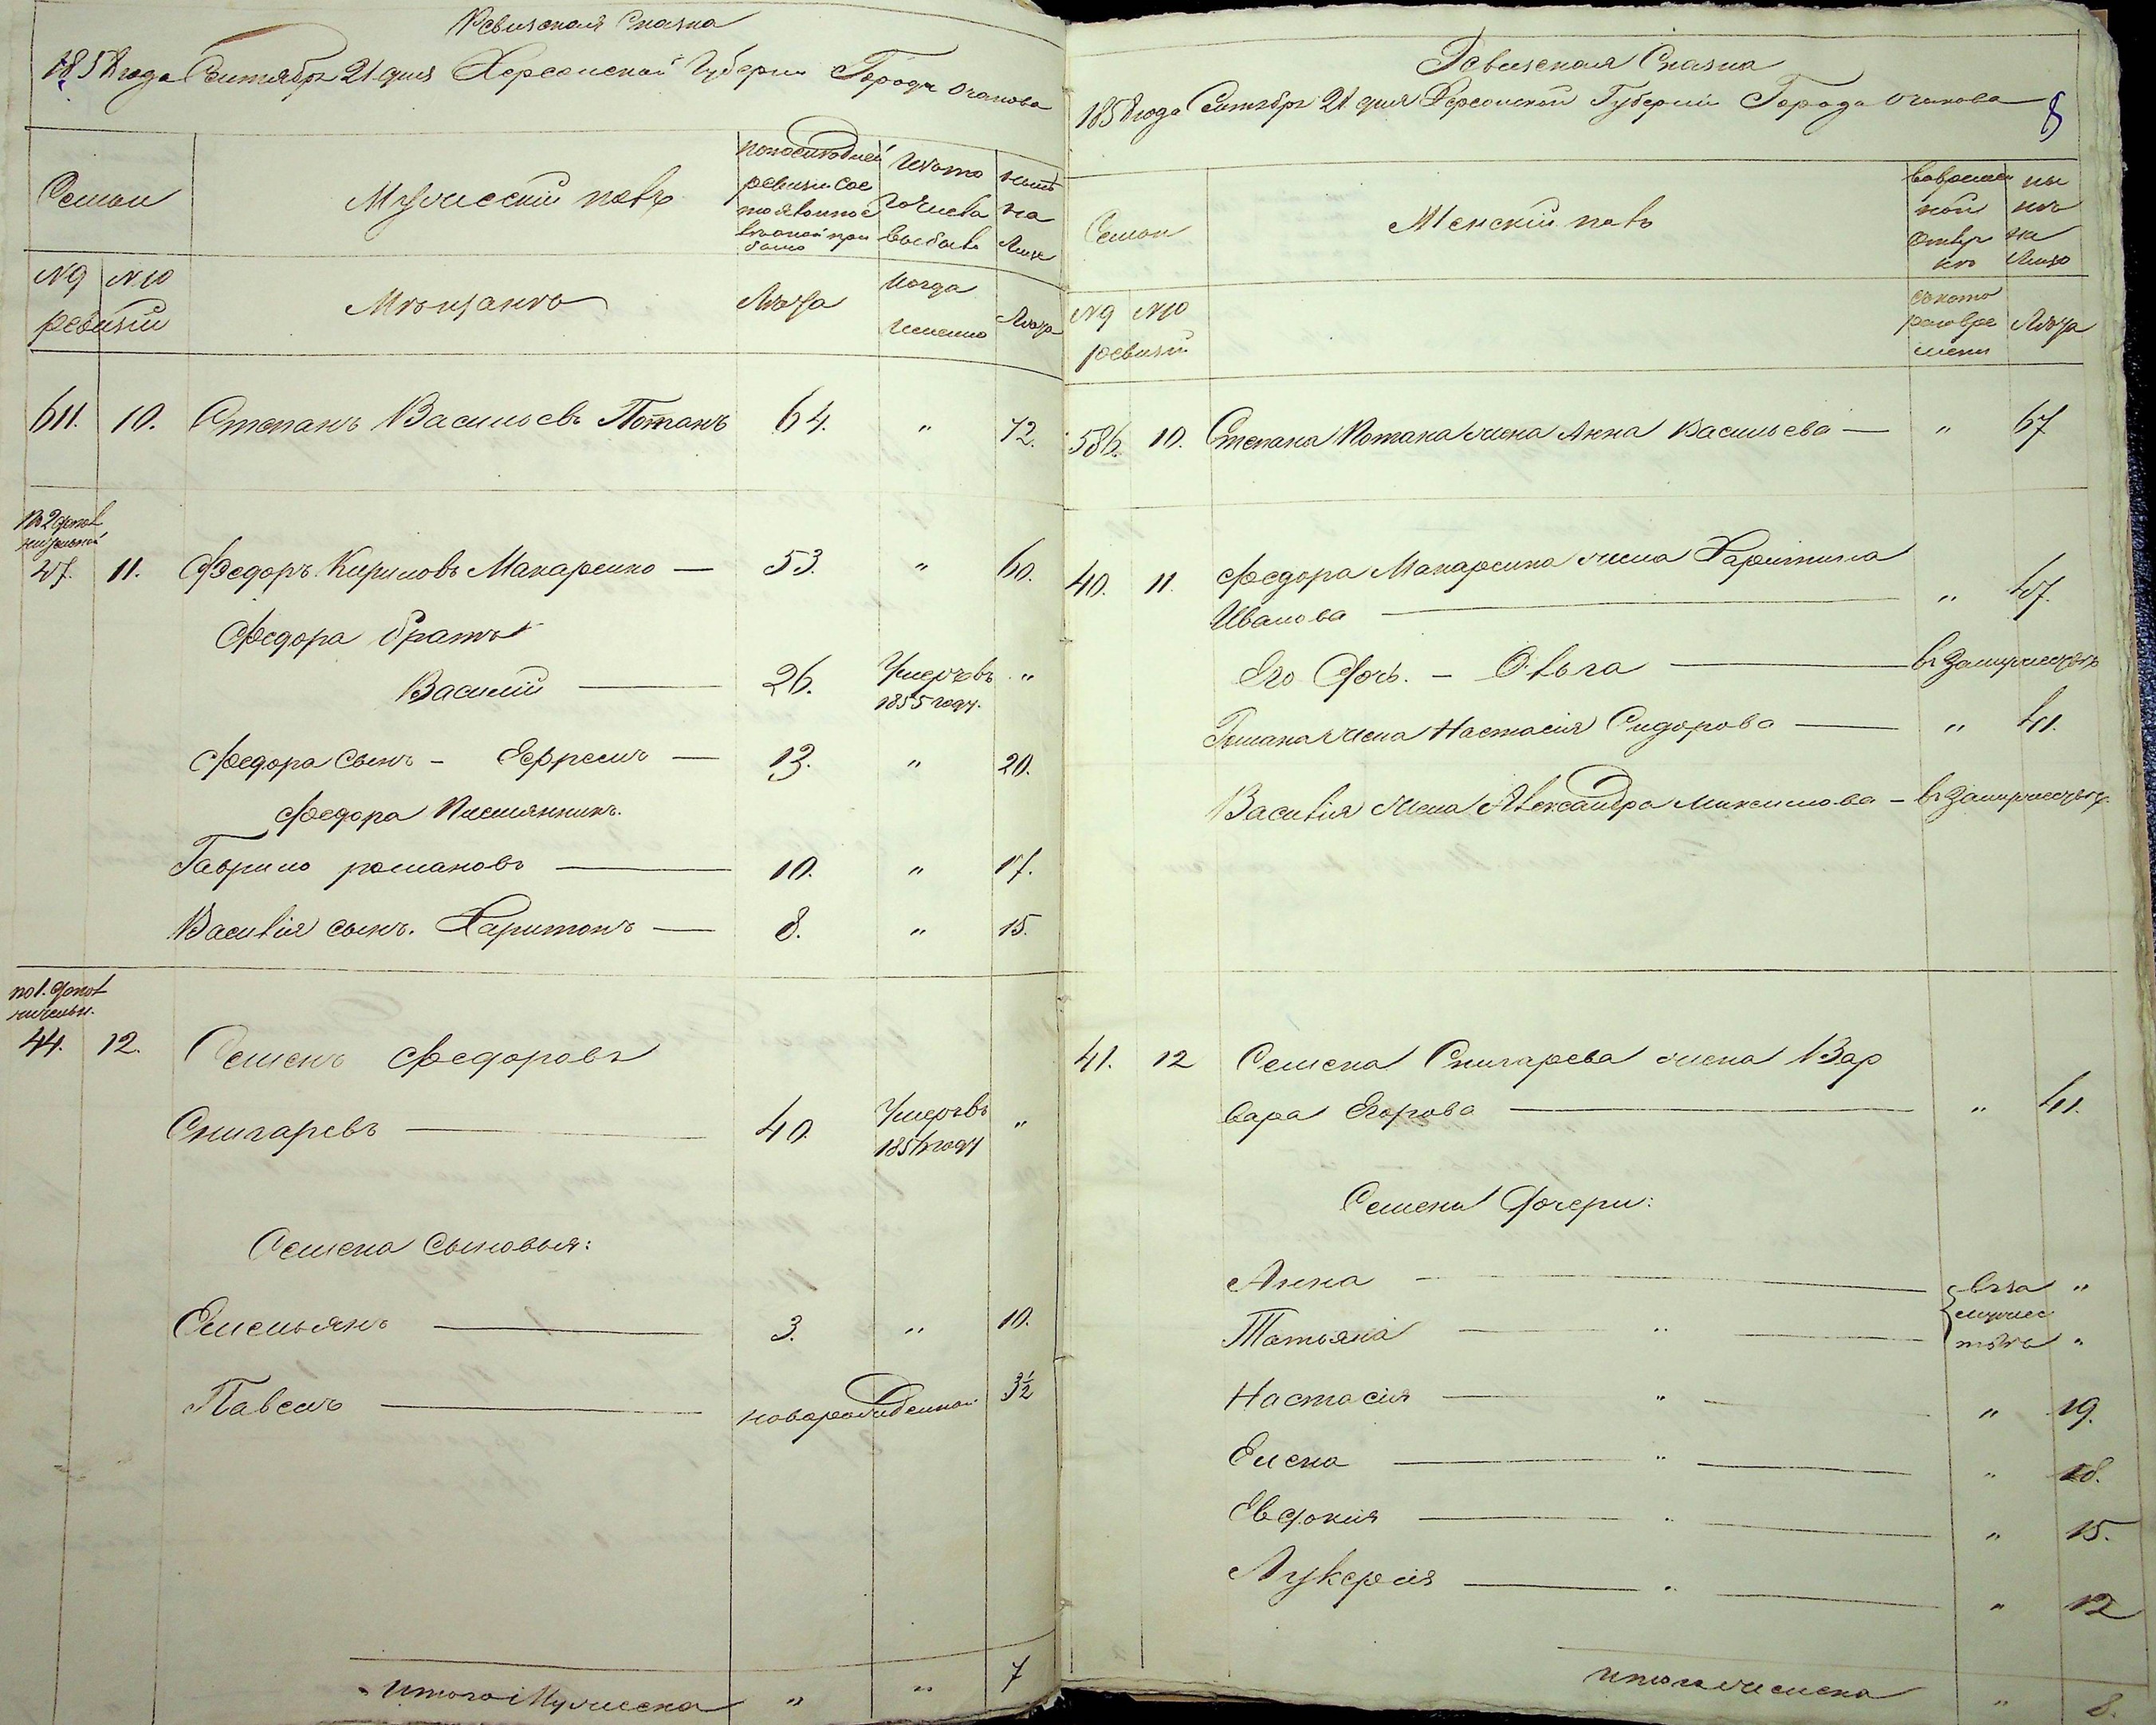 Ревизская Сказка
1858 года Сентября 21 дня Херсонской Губернии Города Очакова
Семьи
Мужеский полъ
по последней
ревизии сос
тояло и пос
ле оной при
было
Изъ того
числа
выбыло
ныне
на
лицо
№ 9 № 10
ревизии
Мещанъ
Лета
Когда
именно
Лета
611. 10. Степанъ Васильевъ Потанъ 64. " 72.
По 2 допол
нительной
47. 11. Федоръ Кириловъ Макаренко — 53. " 60.
Федора братъ
Василий — 26. Умеръ въ "
1855 году.
Федора Сынъ - Ефремъ — 13. " 20.
Федора племянникъ.
Гаврило романовъ — 10. " 17.
Василія сынъ. Харитонъ — 8. " 15.
по 1. допол
нительн.
44. 12. Семенъ Федоровъ
Снигаревъ — 40. Умеръ въ "
1856 году
Семена Сыновья:
Емельянъ — 3. " 10.
Павелъ — новорожденной 3½
итого Мужеска " " 7
Ревизская Сказка
1858 года Сентября 21 дня Херсонской Губернии Города Очакова
8
Семьи
Женскій полъ
Во времен
ной
отлуч
ке
ны
не
на
лицо
№ 9 № 10
ревизии
съ кото
раго вре
мени
Лета
586. 10. Степана Потана жена Анна Васильева — " 67
40. 11. Федора Макаренка жена Харитина
Иванова — " 47.
Его Дочь. - Ольга — въ замужестве
Романа жена Настасія Сидорова — " 41.
Василія жена Александра Максимова — въ замужестве
41. 12 Семена Снигарева жена Вар
вара Егорова — " 41.
Семена Дочери:
Анна — въ за "
мужес
Татьяна — " — тве "
Настасія — " — " 19.
Елена — " — " 18.
Евдокия — " — " 15.
Лукерия — " — " 12
итого женска " 8.